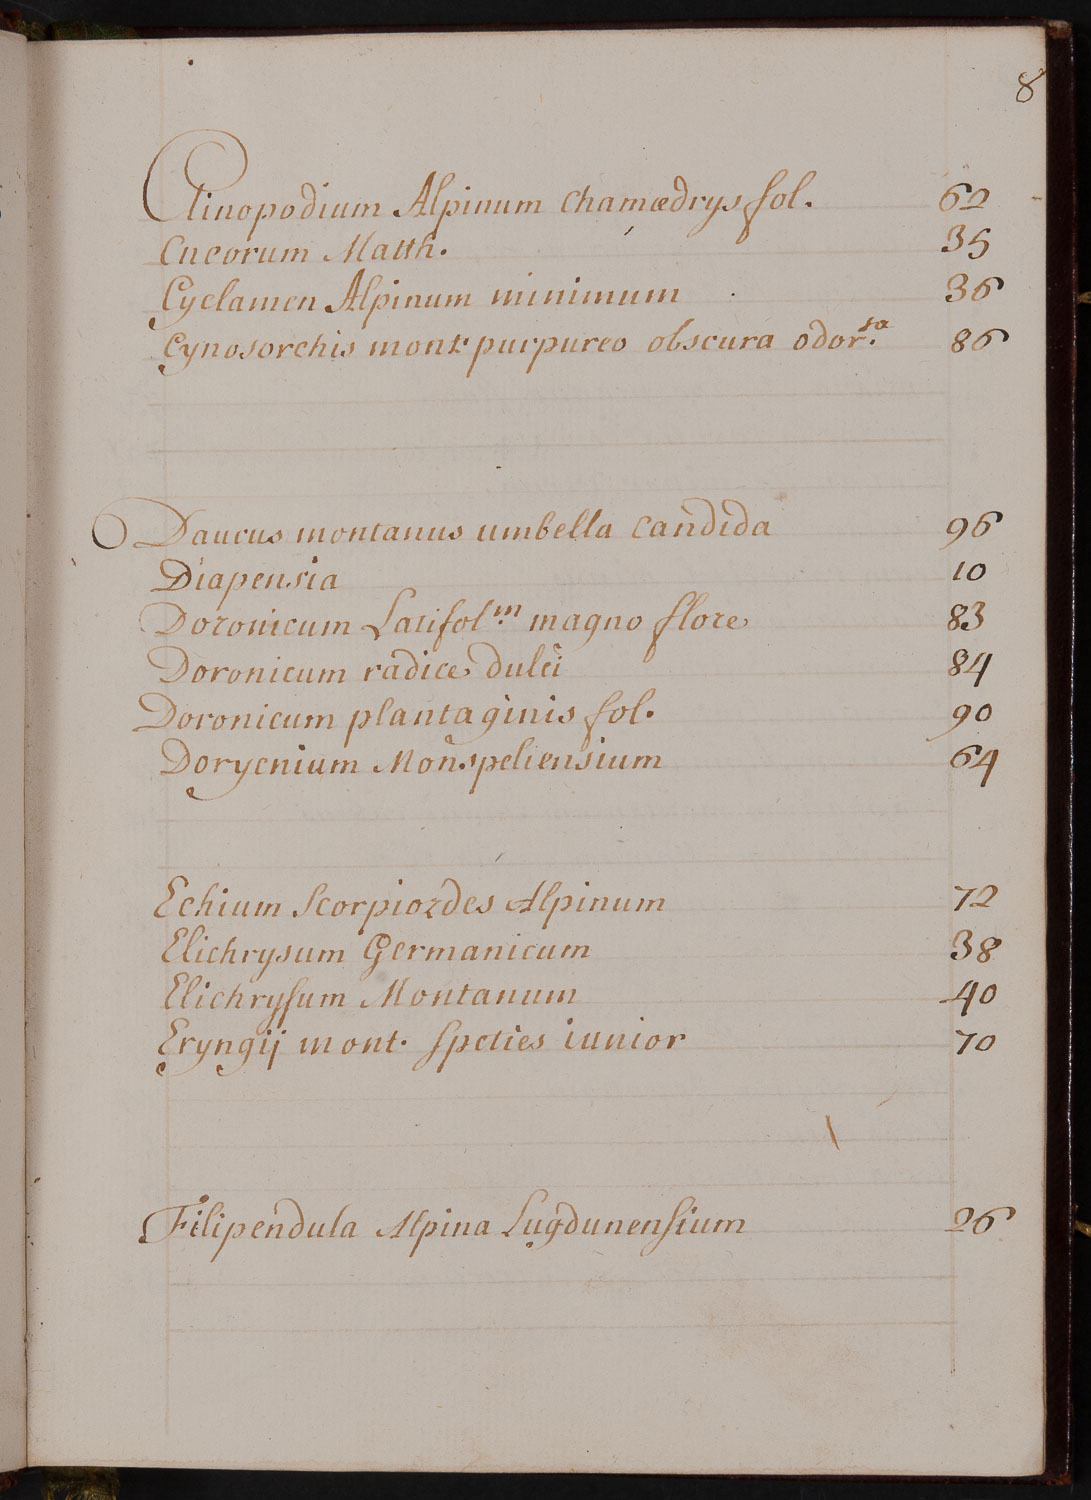 8
Clinopodium Alpinum chamædrys fol. 62
Cneorum Matth. 35
Cyclamen Alpinum minimum 36
Cynosorchis mont. purpureo obscura odor.sa 86
Daucus montanus umbella candida 96
Diapensia 10
Doronicum Latifol.m magno flore 83
Doronicum radice dulci 84
Doronicum plantaginis fol. 90
Dorycnium Monspeliensium 64
Echium scorpioides Alpinum 72
Elichrysum Germanicum 38
Elichrysum Montanum 40
Eryngij mont. species iunior 70
Filipendula Alpina Lugdunensium 26